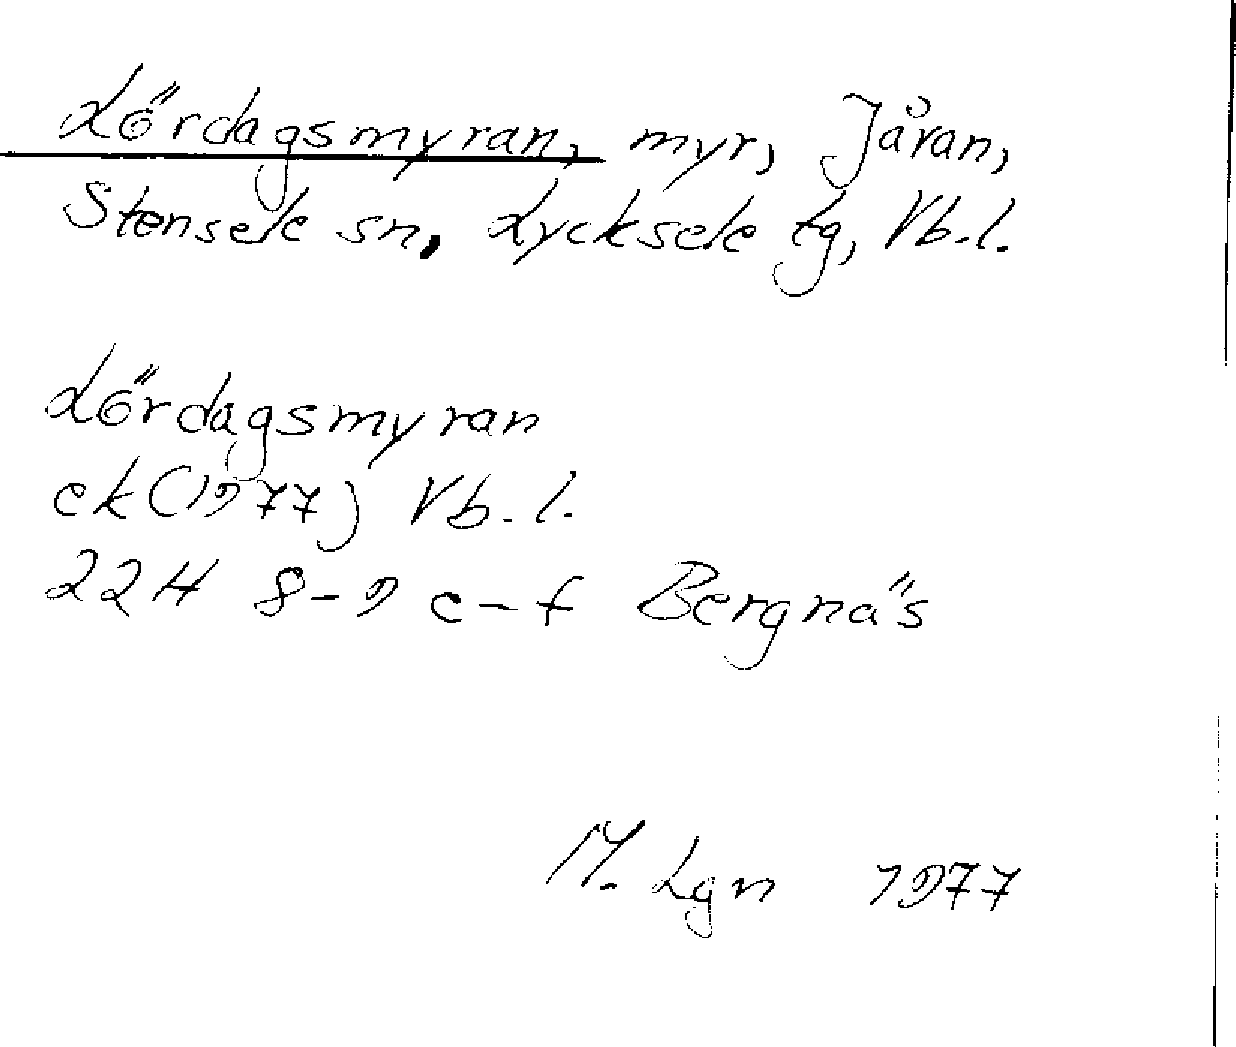 Lördagsmyran, myr, Jåran,
Stensele sn, Lycksele tg, Vb.l.
Lördagsmyran
ek (1977) Vb.l.
22H 8-9 e-f Bergnäs
M. Lgn 1977